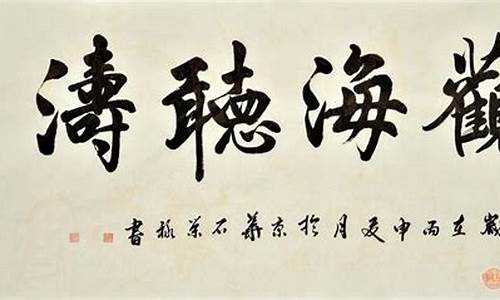 觀海聽濤
歲在丙申夏月於京華石榮祿書